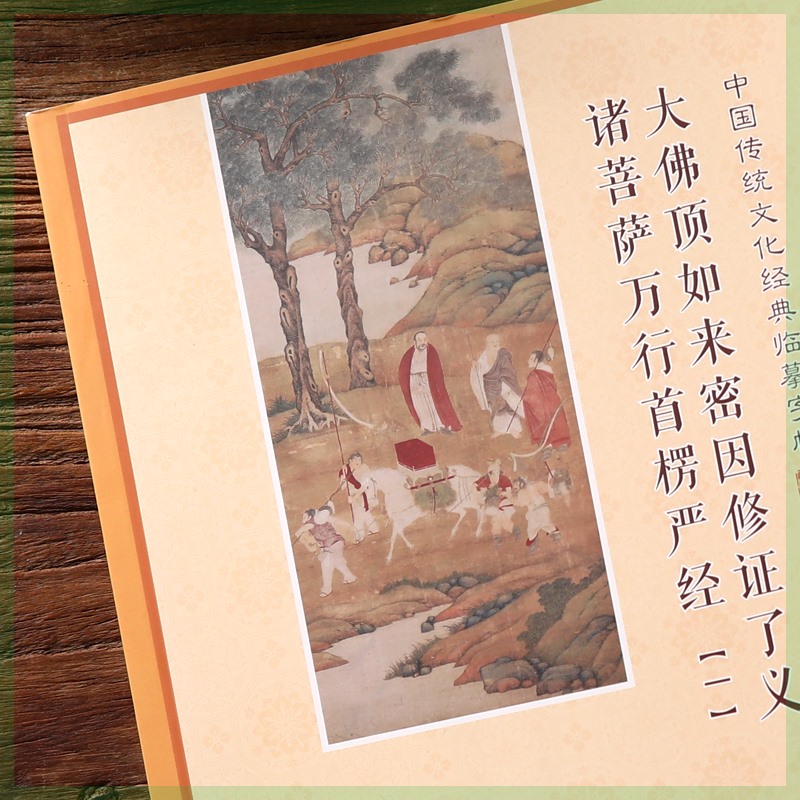 中国传统文化经典临摹字帖
大佛顶如来密因修证了义
诸菩萨万行首楞严经【一】